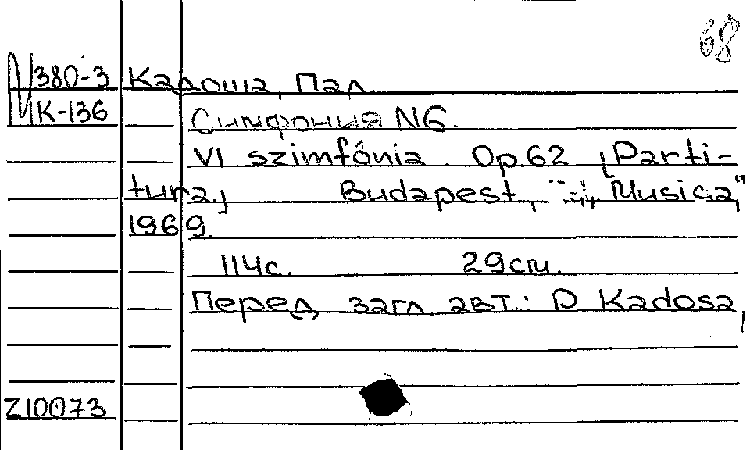 68
M380-3 Кадоша, Пал
МК-136 Симфония N6.
VI szimfónia. Op.62 [Parti-
tura.] Budapest, „Musica,"
1969.
114с. 29см.
Перед загл. авт.: P Kadosa
Z10073